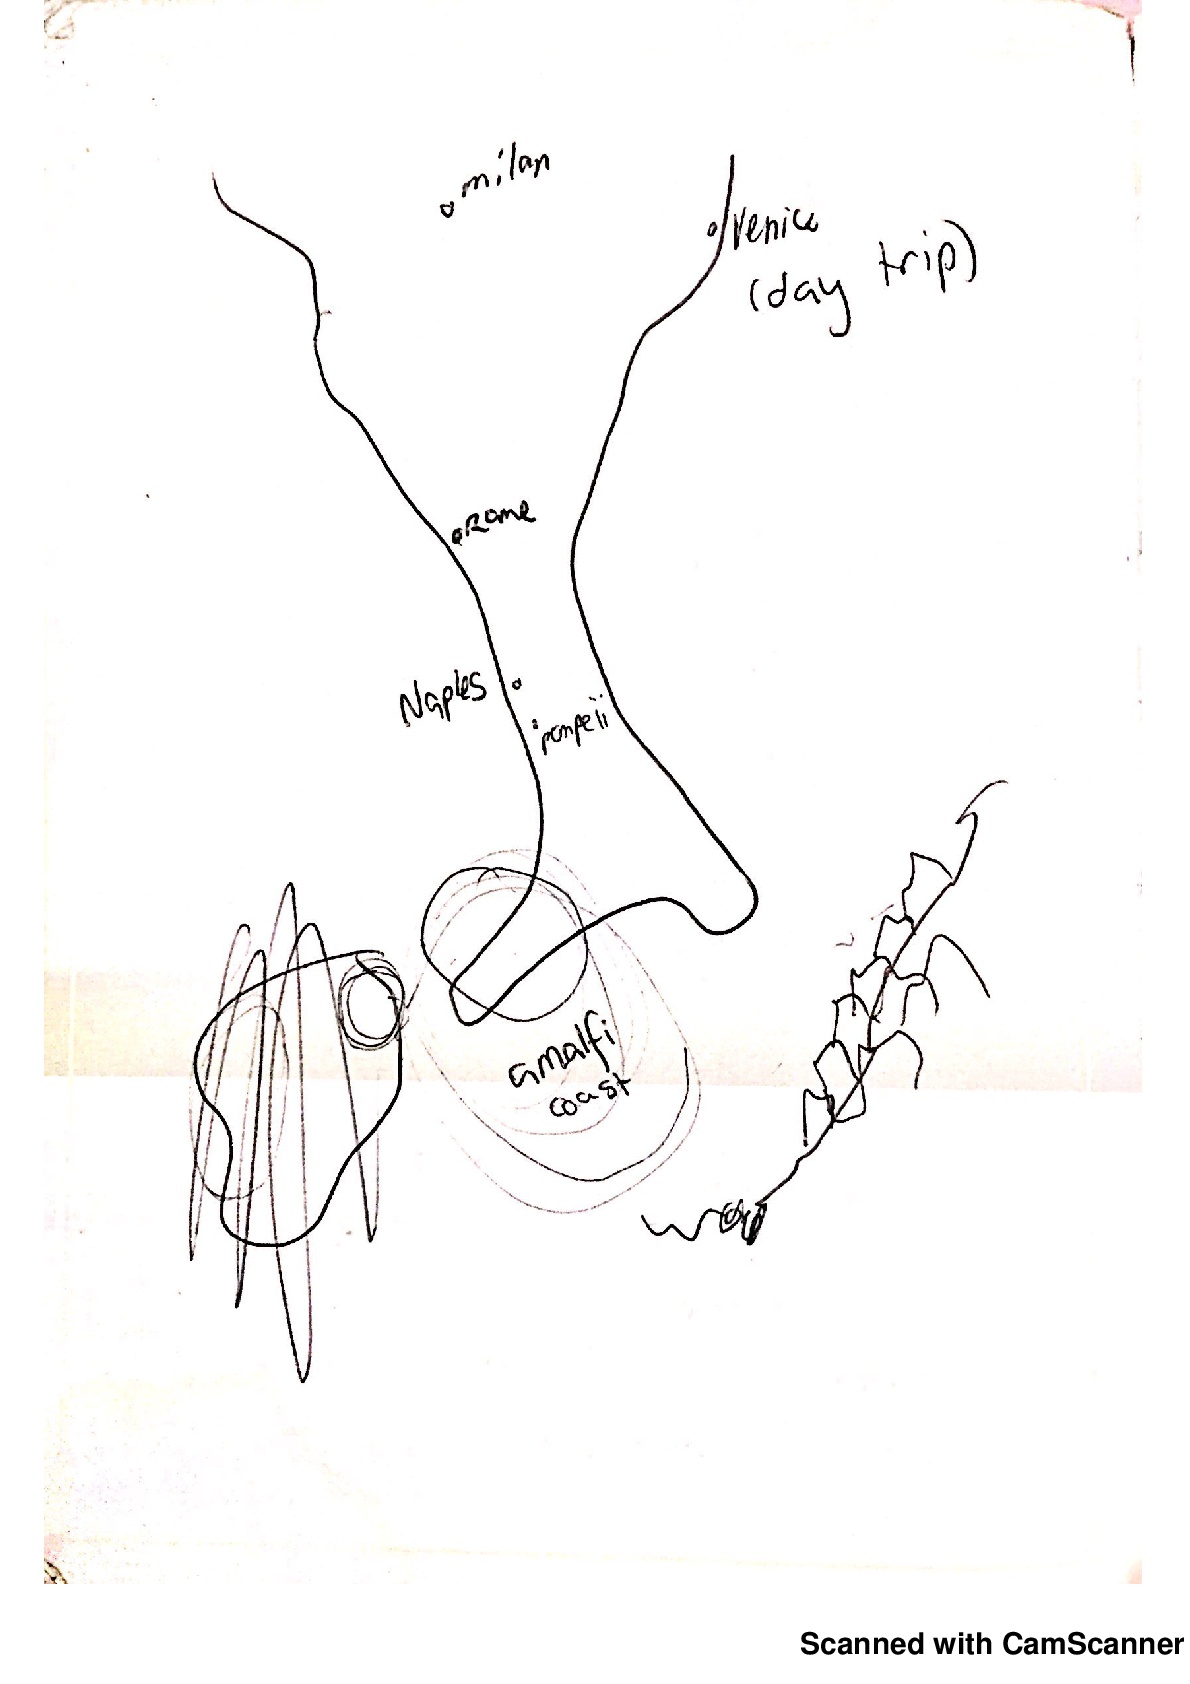 milan
Venice
(day trip)
Rome
Naples
pompeii
amalfi
coast
Scanned with CamScanner